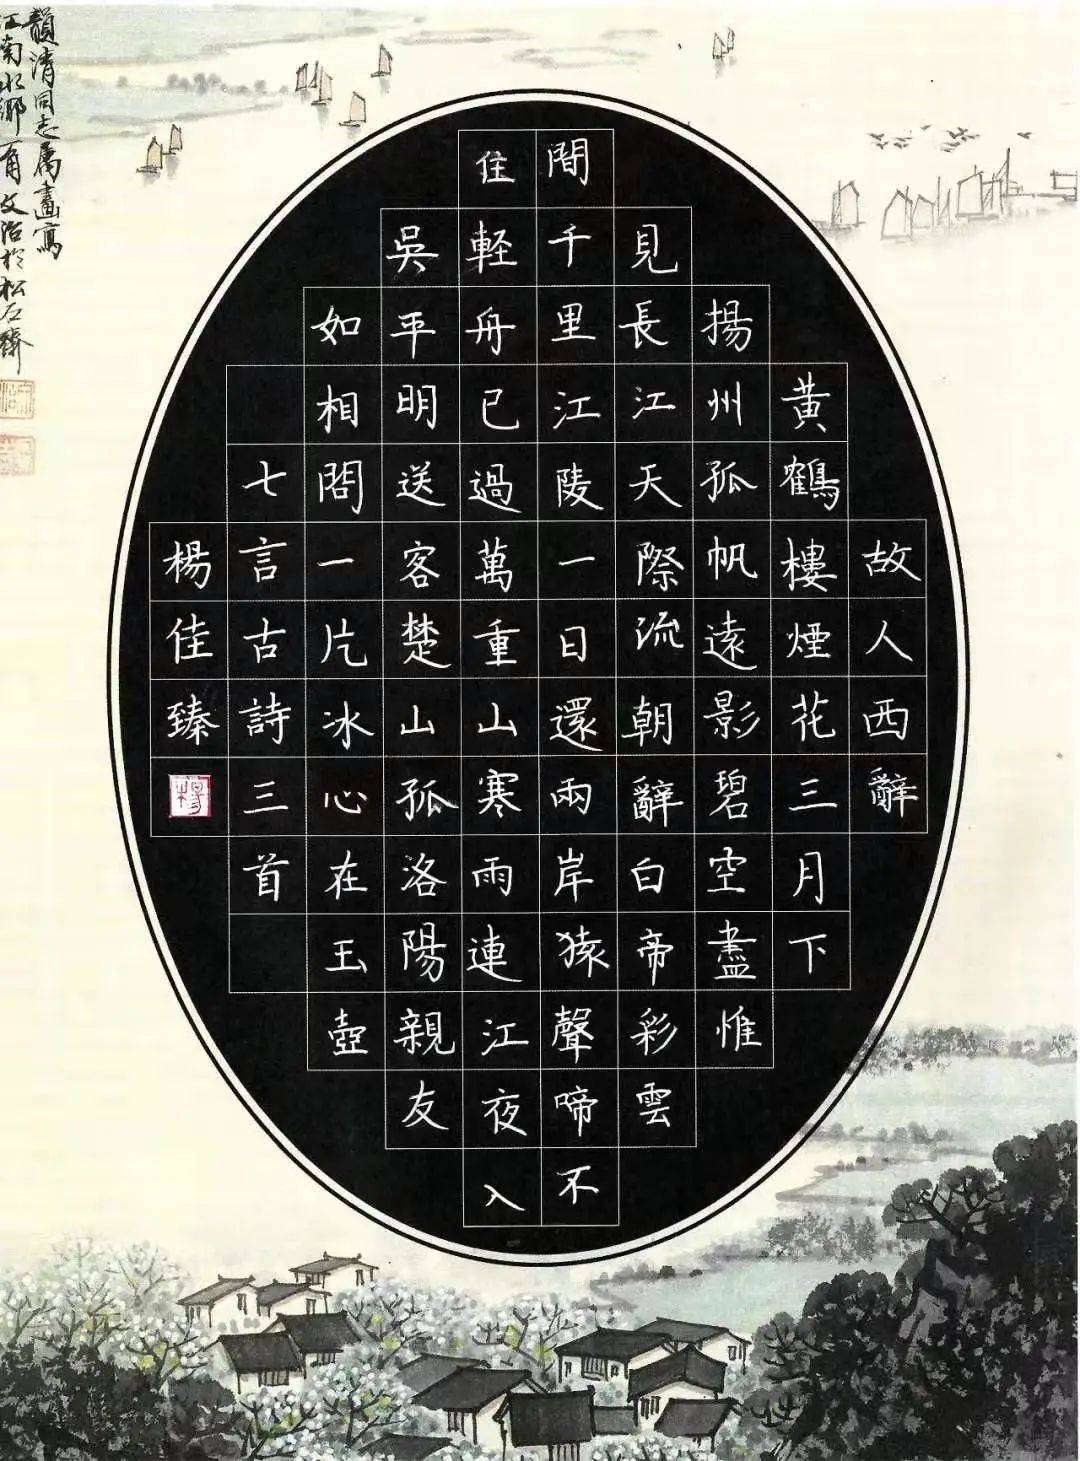 故人西辭
黄鶴樓煙花三月下
揚州孤帆遠影碧空盡惟
見長江天際流朝辭白帝彩雲
間千里江陵一日還兩岸猿聲啼不
住軽舟已過萬重山寒雨連江夜入
吳平明送客楚山孤洛陽親友
如相問一片冰心在玉壺
七言古詩三首
楊佳臻
楊
韻清同志属畫寫
江南水鄉一角文治於松石齋